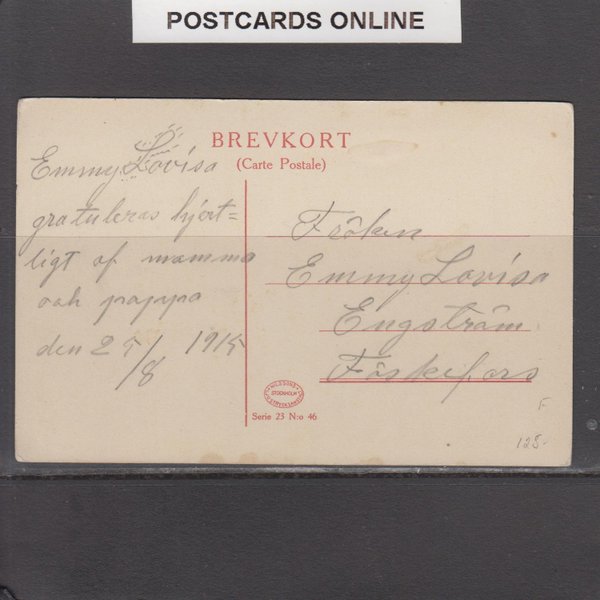 POSTCARDS ONLINE
BREVKORT
(Carte Postale)
Emmy Lovisa
gratuleras hjert=
ligt af mamma
och pappa
den 25/8 1915
Fröken
Emmy Lovisa
Engström
Föskefors
STOCKHOLM
Serie 23 N:o 46
F
125-